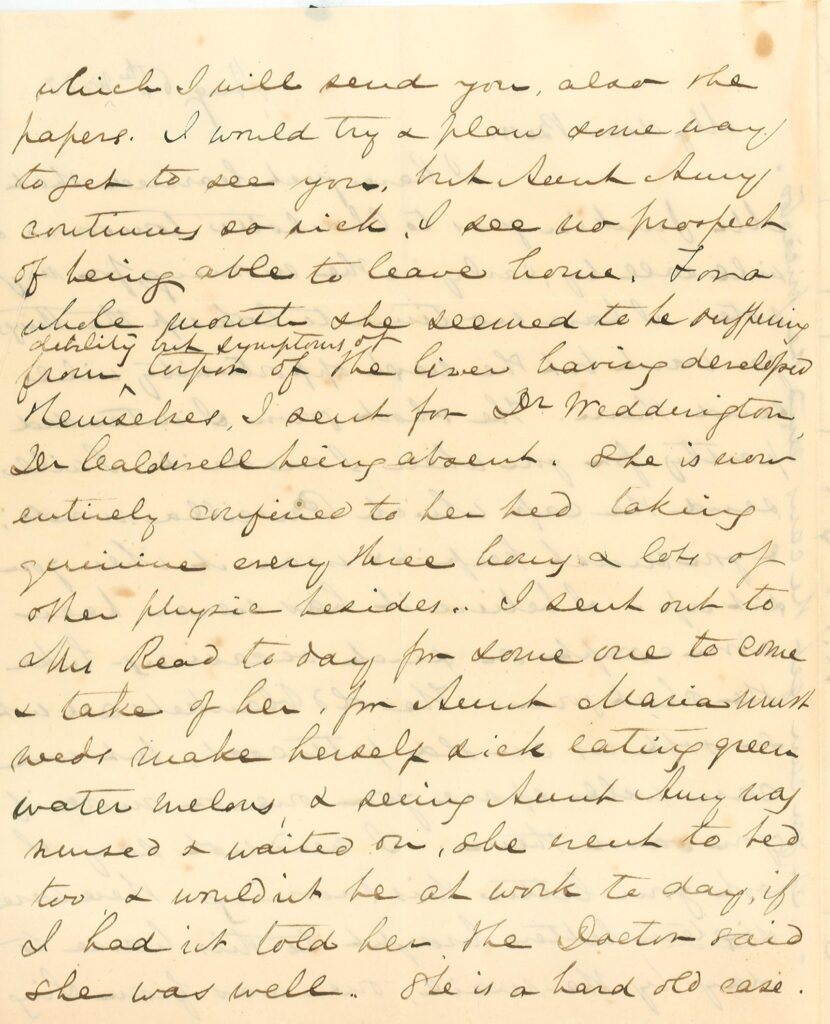 which I will send you, also the
papers. I would try & plan some way
to get to see you, but Aunt Amy
continues so sick, I see no prospect
of being able to leave home. For a
whole month she seemed to be suffering
debility but symptoms of
from ^ torpor of the liver having developed
themselves, I sent for Dr Weddington,
Dr Caldwell being absent. She is now
entirely confined to her bed taking
quinine every three hours & lots of
other physic besides.. I sent out to
Mrs Read to day for some one to come
& take of her, for Aunt Maria must
needs make herself sick eating green
water melons, & seeing Aunt Amy was
nursed & waited on, she went to bed
too & would'nt be at work to day, if
I had'nt told her the Doctor said
she was well.. She is a hard old case.